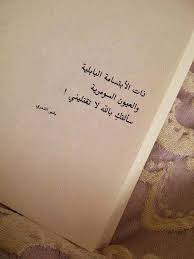 ذات الأبتسامة البابلية
والعيون السومرية
سألتكِ بالله لا تقتليني !